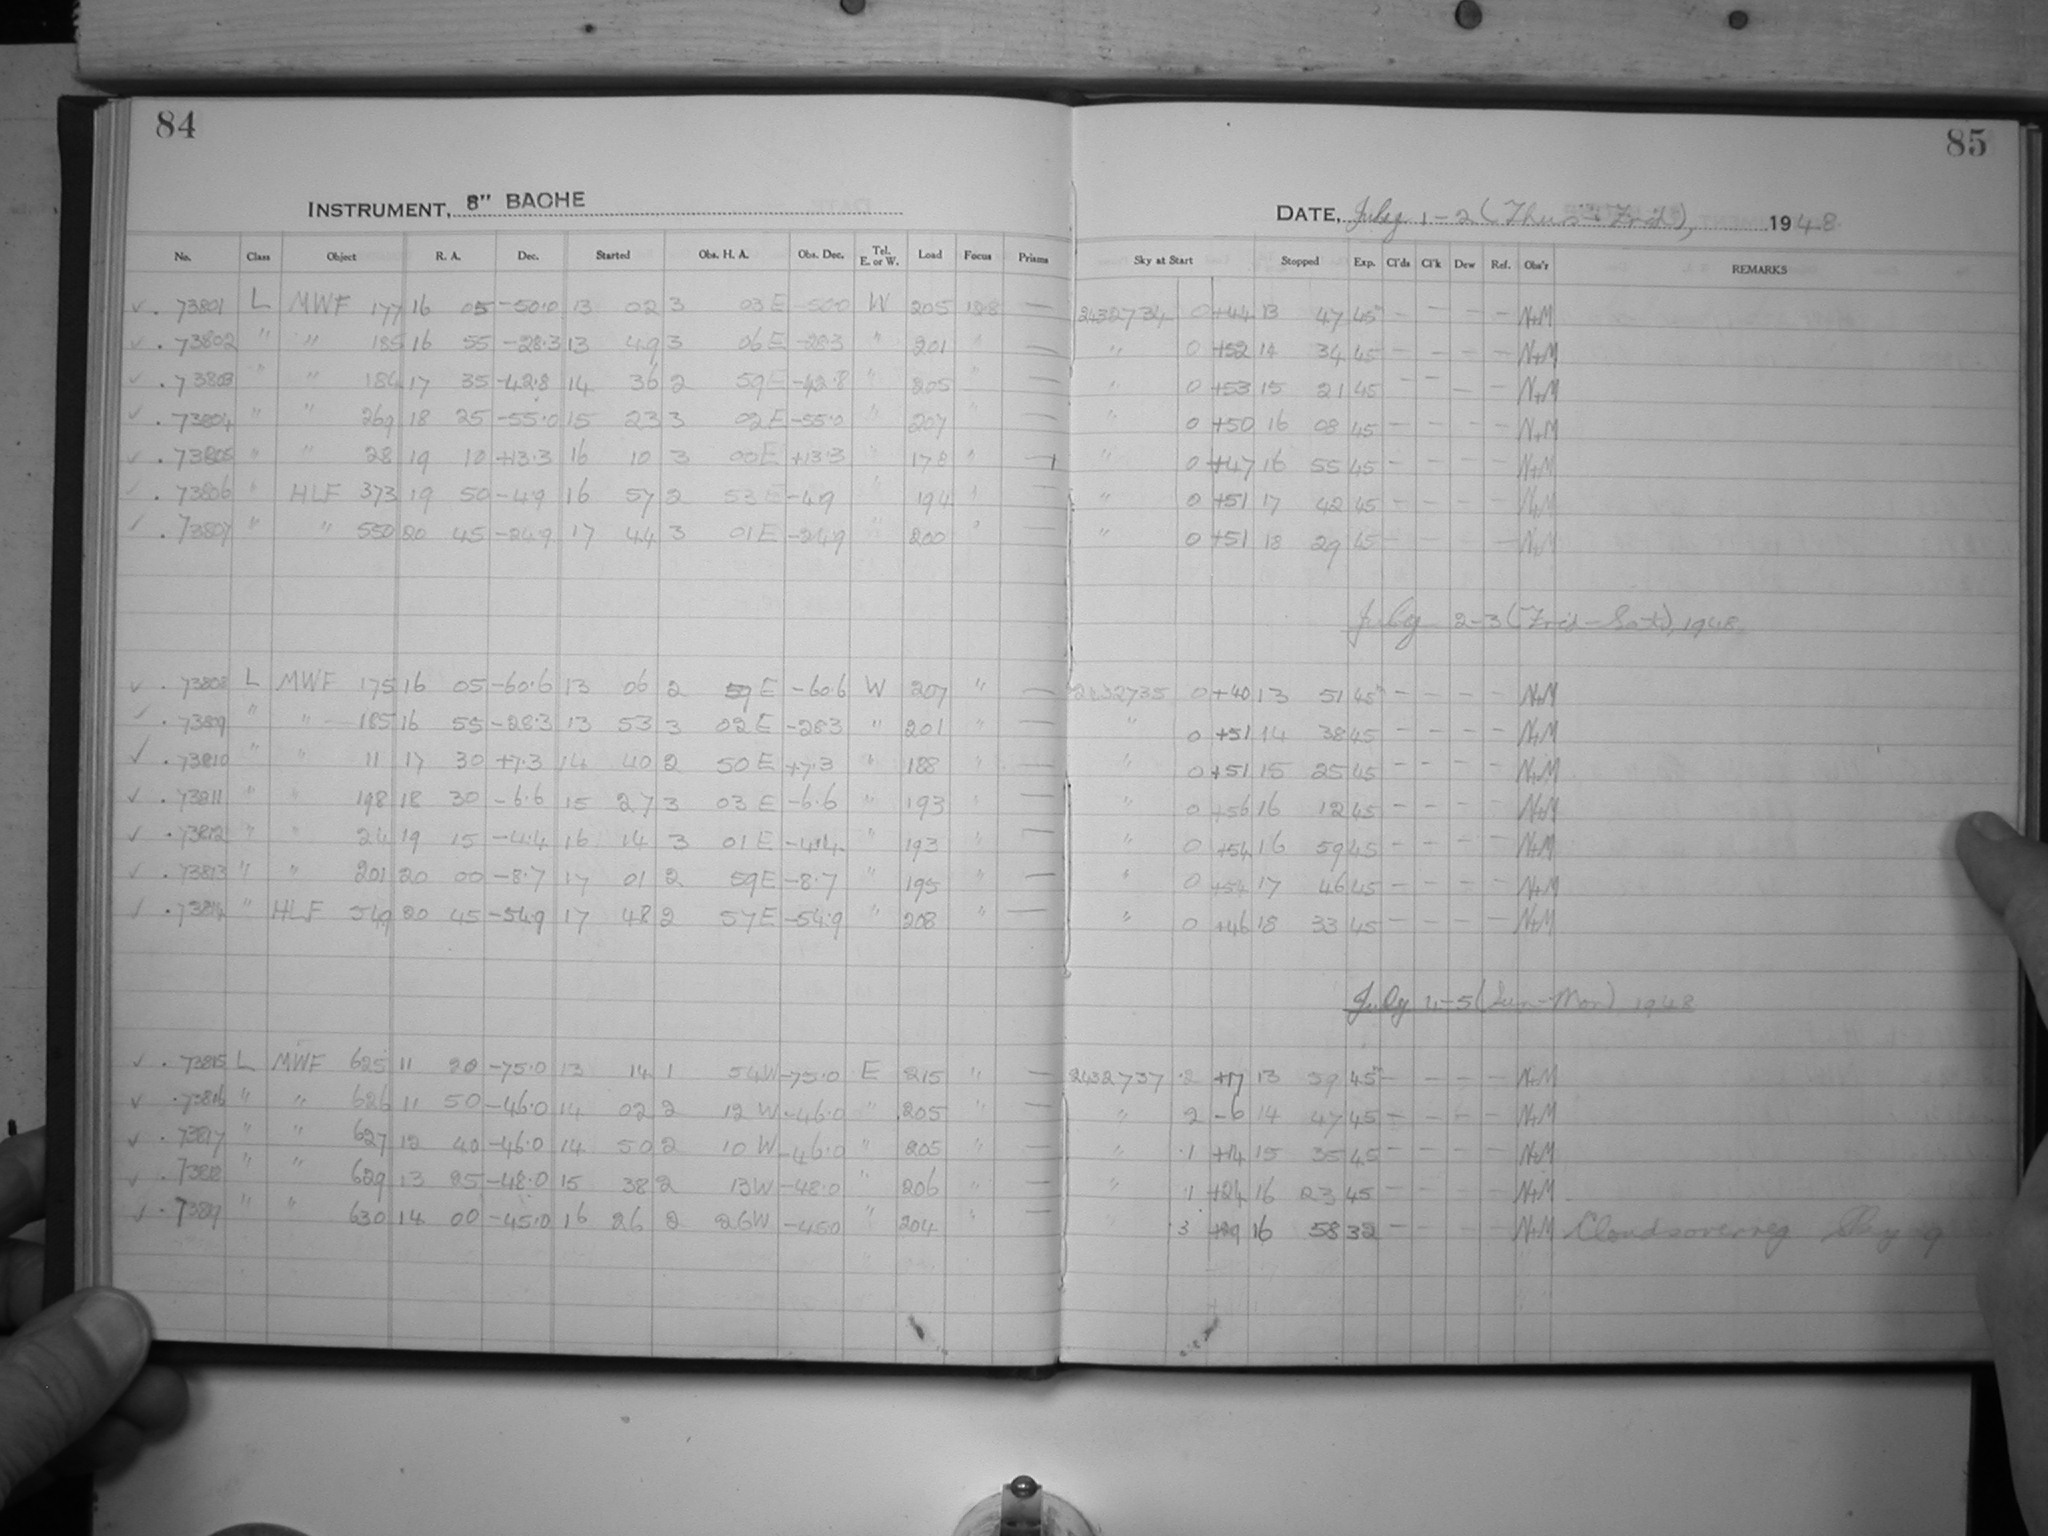 84
85
INSTRUMENT, 8" BACHE
DATE, July 1-2 (Thurs-Frid), 1948
No. Class Object R. A. Dec. Started Obs. H. A. Obs. Dec. Tel. E. or W. Load Focus Prisms Sky at Start Stopped Exp. Cl'ds Cl'k Dew Ref. Obs'r REMARKS
✓ . 73801 L MWF 177 16 05 -50.0 13 02 3 03 E -50.0 W 205 12.8 — 2432734 0 +44 13 47 45 - - - - N+M
✓ . 73802 " " 185 16 55 -28.3 13 49 3 06 E -28.3 " 201 " — " 0 +52 14 34 45 - - - - N+M
✓ . 73803 " " 184 17 35 -42.8 14 36 2 59 E -42.8 " 205 " — " 0 +53 15 21 45 - - - - N+M
✓ . 73804 " " 269 18 25 -55.0 15 23 3 02 E -55.0 " 207 " — " 0 +50 16 08 45 - - - - N+M
✓ . 73805 " " 28 19 10 +13.3 16 10 3 00 E +13.3 " 178 " — " 0 +47 16 55 45 - - - - N+M
✓ . 73806 " HLF 373 19 50 -4.9 16 57 2 53 E -4.9 " 194 " — " 0 +51 17 42 45 - - - - N+M
✓ . 73807 " " 550 20 45 -24.9 17 44 3 01 E -24.9 " 200 " — " 0 +51 18 29 45 - - - - N+M
July 2-3 (Frid-Sat), 1948
✓ . 73808 L MWF 175 16 05 -60.6 13 06 2 59 E -60.6 W 207 " — 2432735 0 +40 13 51 45 - - - - N+M
✓ . 73809 " " 185 16 55 -28.3 13 53 3 02 E -28.3 " 201 " — " 0 +51 14 38 45 - - - - N+M
✓ . 73810 " " 11 17 30 +7.3 14 40 2 50 E +7.3 " 188 " — " 0 +51 15 25 45 - - - - N+M
✓ . 73811 " " 198 18 30 -6.6 15 27 3 03 E -6.6 " 193 " — " 0 +56 16 12 45 - - - - N+M
✓ . 73812 " " 24 19 15 -4.4 16 14 3 01 E -4.4 " 193 " — " 0 +54 16 59 45 - - - - N+M
✓ . 73813 " " 201 20 00 -8.7 17 01 2 59 E -8.7 " 195 " — " 0 +54 17 46 45 - - - - N+M
✓ . 73814 " HLF 549 20 45 -54.9 17 48 2 57 E -54.9 " 208 " — " 0 +46 18 33 45 - - - - N+M
July 4-5 (Sun-Mon) 1948
✓ . 73815 L MWF 625 11 20 -75.0 13 14 1 54 W -75.0 E 215 " — 2432737 .2 +17 13 59 45 - - - - N+M
✓ . 73816 " " 626 11 50 -46.0 14 02 2 12 W -46.0 " 205 " — " 2 -6 14 47 45 - - - - N+M
✓ . 73817 " " 627 12 40 -46.0 14 50 2 10 W -46.0 " 205 " — " .1 +14 15 35 45 - - - - N+M
✓ . 73818 " " 629 13 25 -48.0 15 38 2 13 W -48.0 " 206 " — " .1 +24 16 23 45 - - - - N+M
✓ . 73819 " " 630 14 00 -45.0 16 26 2 26 W -45.0 " 204 " — " .3 +29 16 58 32 - - - - N+M Clouds Sky .9